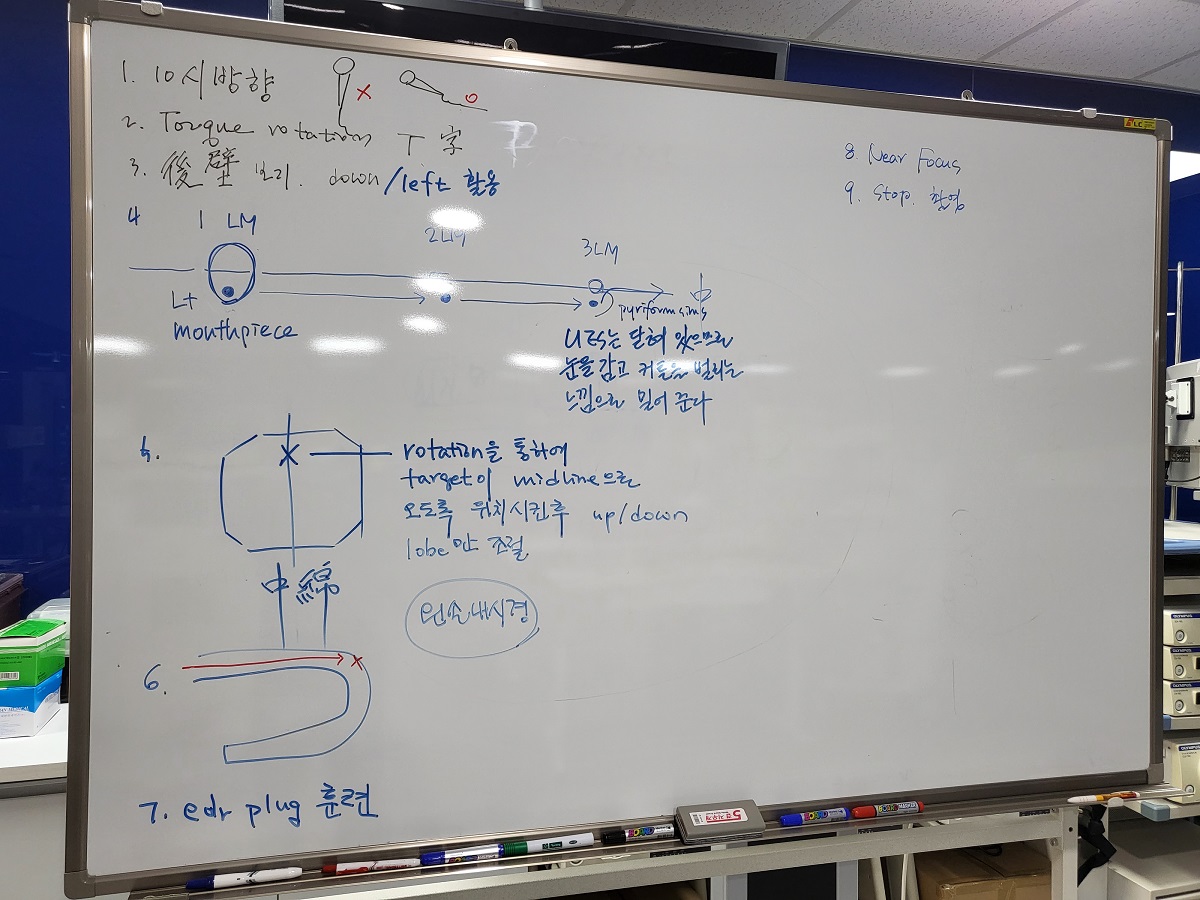 1. 10시방향
x
o
2. Torque rotation T 字
3. 後壁 보기. down/left 활용
4
1 LM
2LM
3LM
Lt
mouthpiece
pyriform sinus
UES는 닫혀 있으므로
눈을 감고 커튼을 벌리는
느낌으로 밀어 준다
5.
x
rotation을 통하여
target이 midline으로
오도록 위치시킨후 up/down
lobe만 조절
中線
왼손내시경
6.
x
7. edr plug 훈련
8. Near Focus
9. Stop. 촬영
OLYMPUS
OLYMPUS